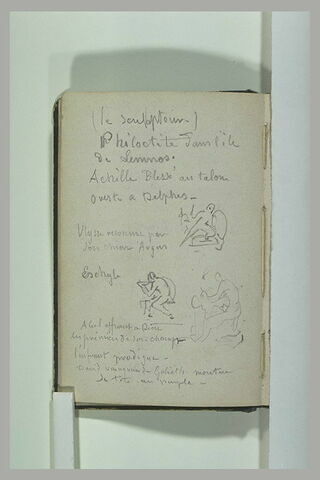 (le sculpteur)
Philoctète dans l'île
de Lemnos.
Achille Blessé au talon
Oreste a Delphes -
Ulysse reconnu par
son chien Argus
Eschyle
Abel offrant à Dieu
les prémices de son champ
l'enfant prodigue -
David vainqueur de Goliath montrant
la tête au peuple -